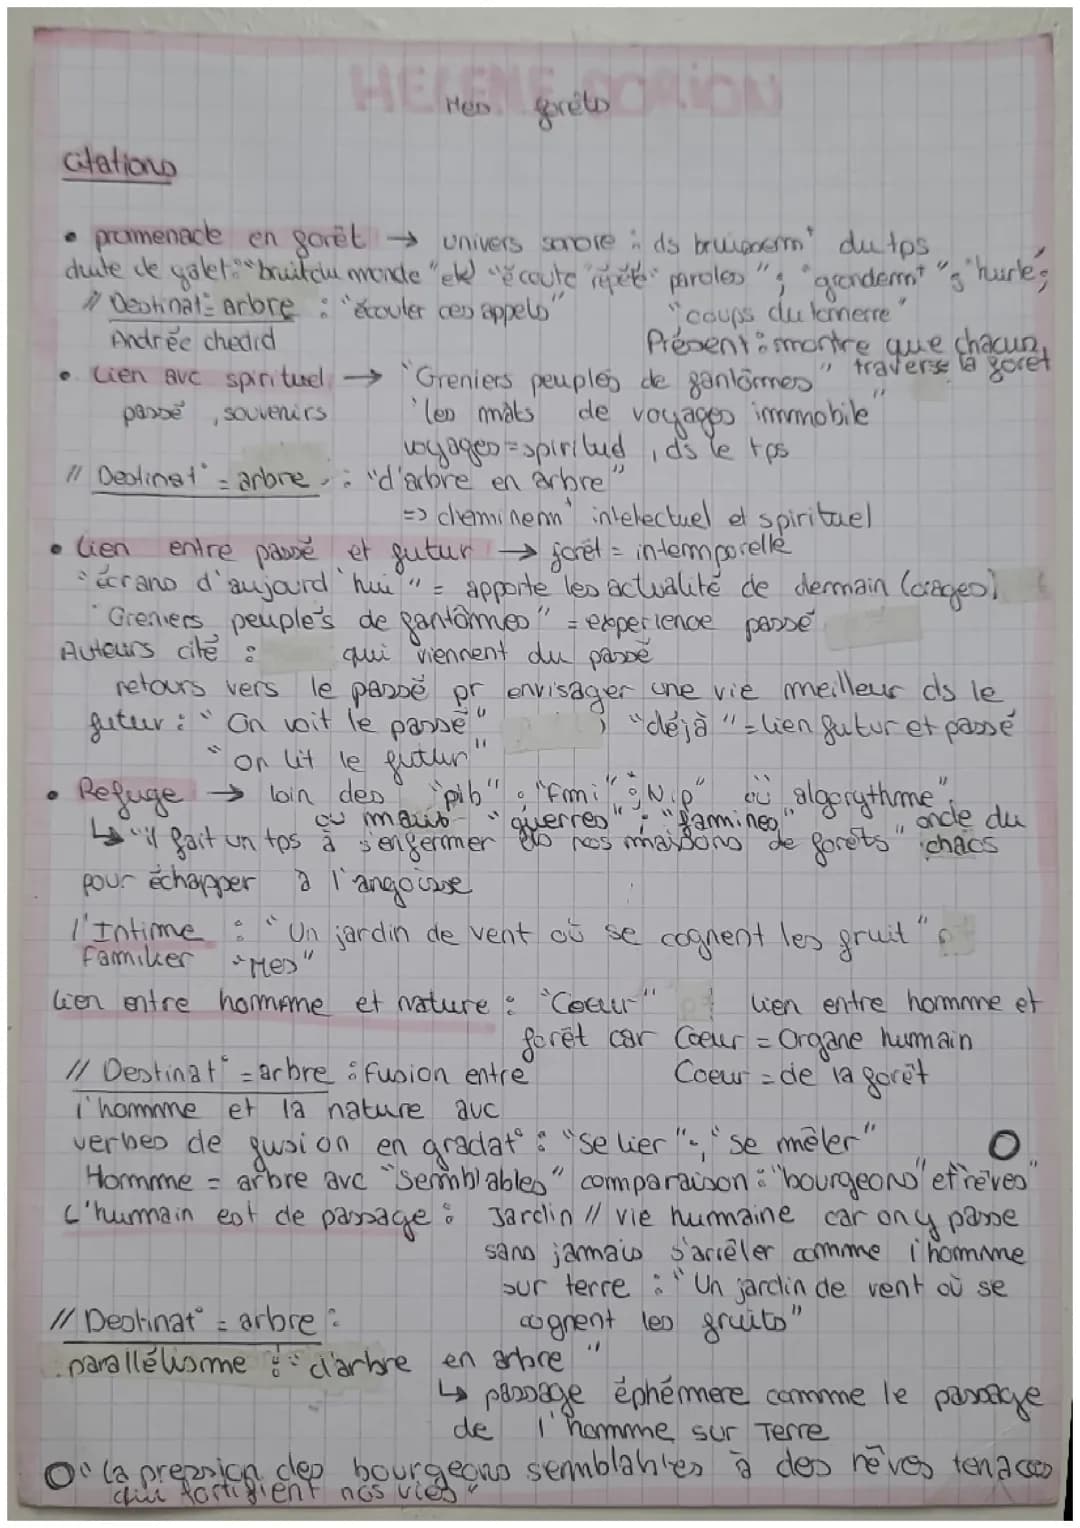 HELENE DORION
Mes forêts
Citations
• promenade en forêt → univers sonore : ds bruissem^t du tps
chute de galet : "bruit du monde" et "écoute répété paroles" ; "grondem^t" ; "hurle" ;
// Destinat° = arbre : "écouter ces appels" "coups du tonnerre"
Andrée chedid Présent : montre que chacun
• Lien avc spirituel → "Greniers peuplés de fantômes" traverse la forêt
passé , souvenirs "les mâts de voyages immobile"
voyages = spirituel , ds le tps
// Destinat° = arbre : "d'arbre en arbre"
=> cheminem^t intelectuel et spirituel
• Lien entre passé et futur → forêt = intemporelle
"écrans d'aujourd'hui" = apporte les actualité de demain (orages)
"Greniers peuplés de fantômes" = experience passé
Auteurs cité : qui viennent du passé
retours vers le passé pr envisager une vie meilleur ds le
futur : "On voit le passé" "déjà" = lien futur et passé
"on lit le futur"
• Refuge → loin des "pib" ; "fmi" ; "Nip" où "algorythme"
ou mauis "guerres" ; "famines" "onde du
↳ "il fait un tps à s'enfermer ds nos maisons de forêts" chaos
pour échapper à l'angoisse
l'Intime : "Un jardin de vent où se cognent les fruit"
familier "Mes"
lien entre homme et nature : "Coeur" lien entre homme et
forêt car Coeur = Organe humain
// Destinat° = arbre : fusion entre Coeur = de la forêt
l'homme et la nature avc
verbes de fusion en gradat° : "se lier" ; "se mêler"
Homme = arbre avc "Semblables" comparaison : "bourgeons" et "rêves"
L'humain est de passage : Jardin // vie humaine car on y passe
sans jamais s'arrêter comme l'homme
sur terre : "Un jardin de vent où se
// Destinat° = arbre : cognent les fruits"
parallélisme : "d'arbre en arbre"
↳ passage éphémere comme le passage
de l'homme sur Terre
O "la pression des bourgeons semblables à des rêves tenaces
qui fortifient nos vies"